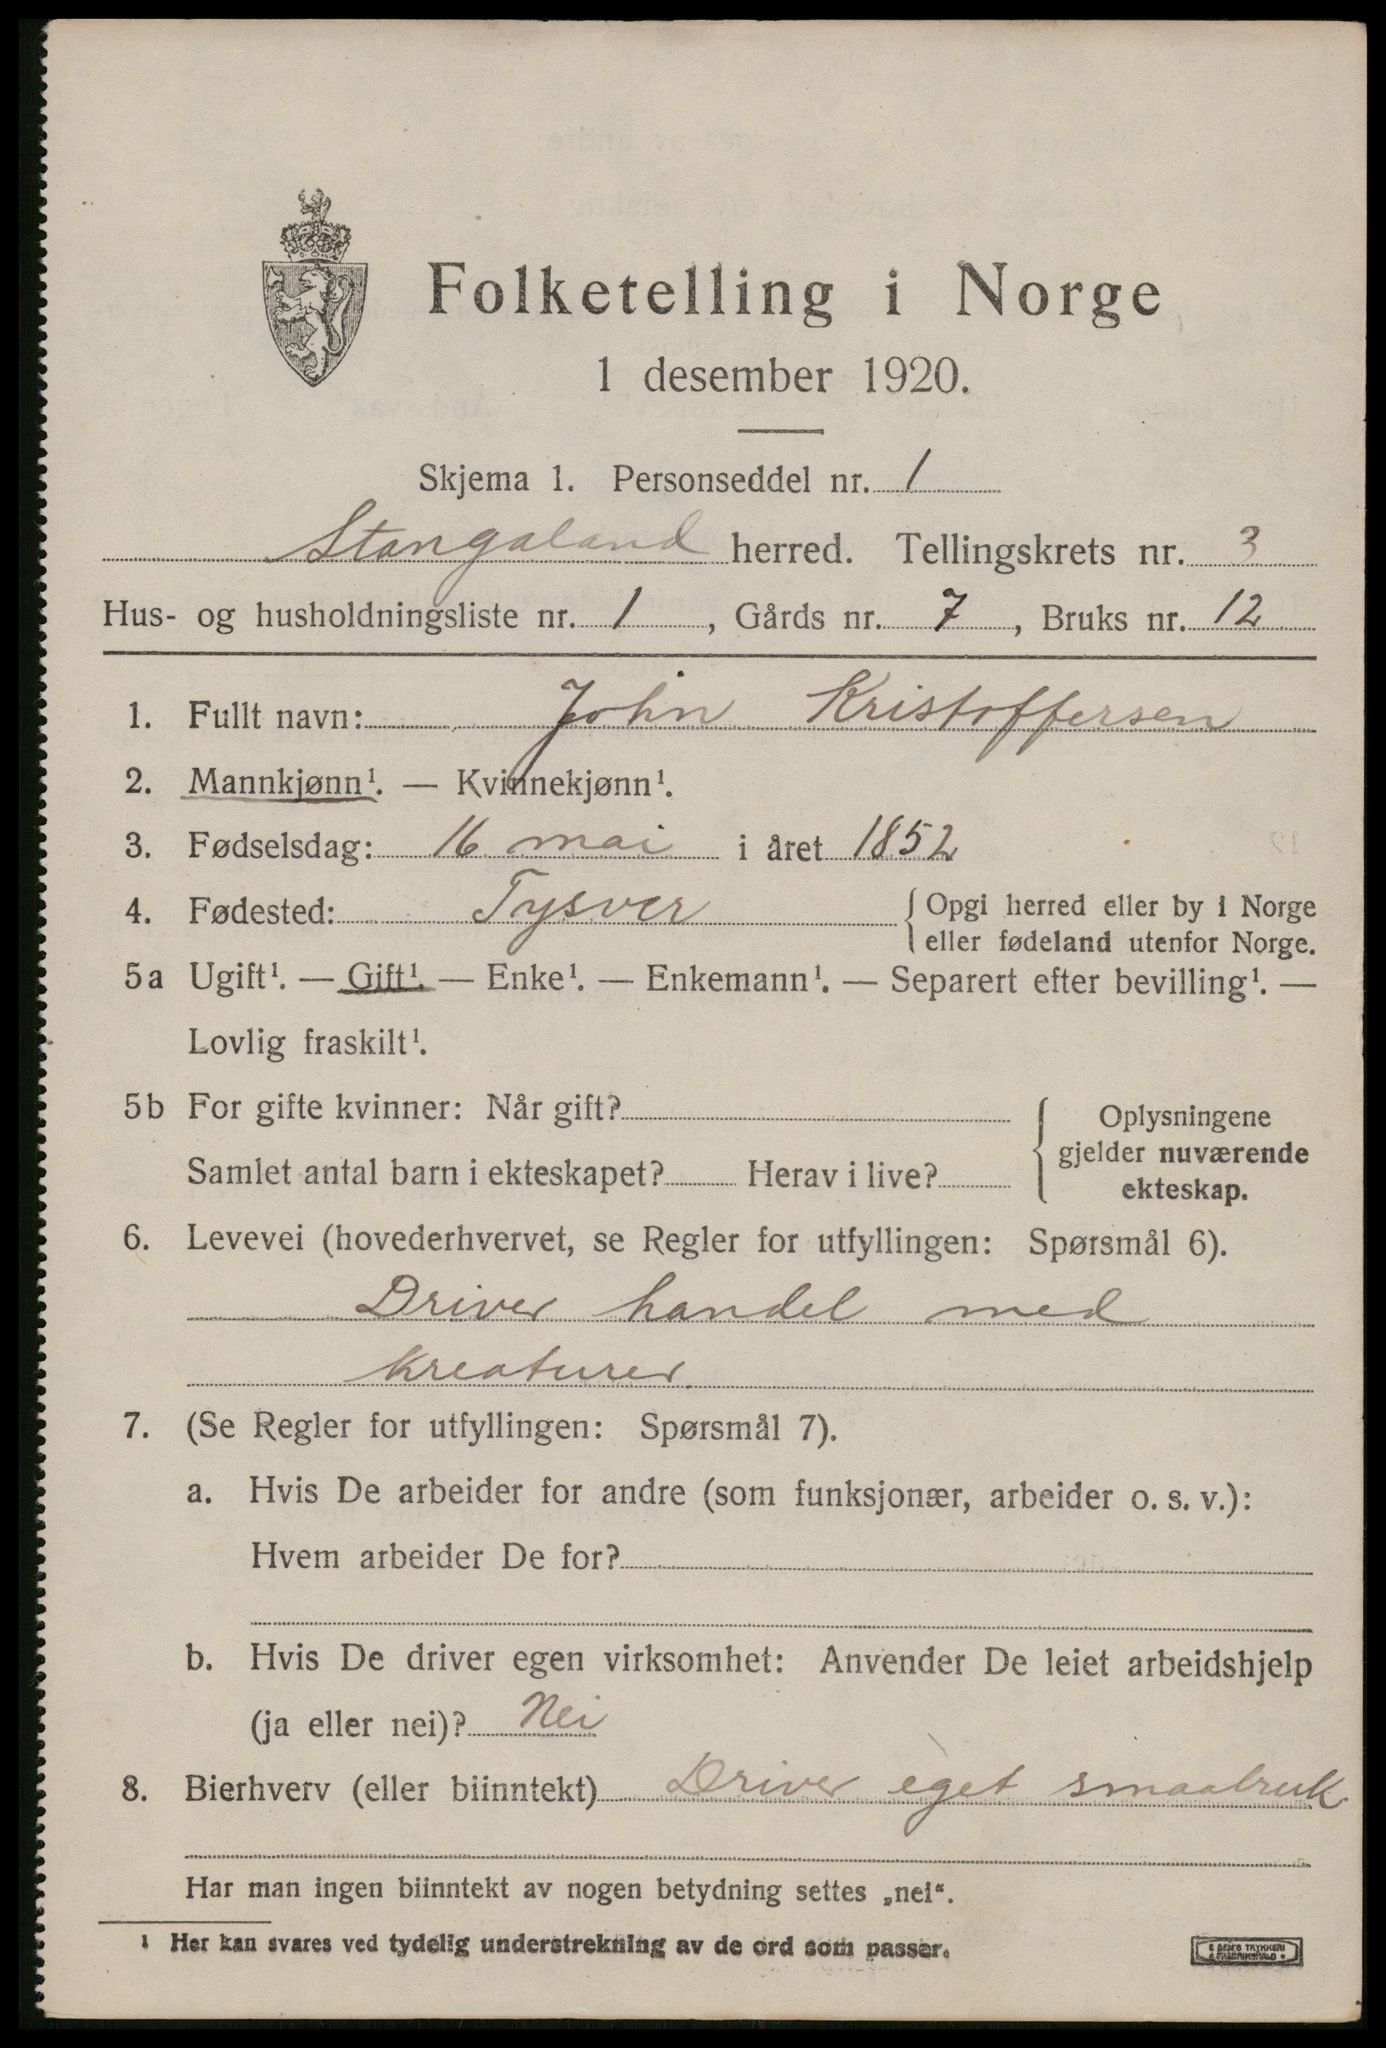 Folketelling i Norge
1 desember 1920.
Skjema 1. Personseddel nr. 1
Stangaland herred. Tellingskrets nr. 3
Hus- og husholdningsliste nr. 1, Gårds nr. 7, Bruks nr. 12
1. Fullt navn: John Kristoffersen
2. Mannkjønn¹. — Kvinnekjønn¹.
3. Fødselsdag: 16 mai i året 1852
4. Fødested: Tysver { Opgi herred eller by i Norge
eller fødeland utenfor Norge.
5a Ugift¹. — Gift¹. — Enke¹. — Enkemann¹. — Separert efter bevilling¹. —
Lovlig fraskilt¹.
5b For gifte kvinner: Når gift?
Samlet antal barn i ekteskapet? Herav i live?
{ Oplysningene
gjelder nuværende
ekteskap.
6. Levevei (hovederhvervet, se Regler for utfyllingen: Spørsmål 6).
Driver handel med
kreaturer
7. (Se Regler for utfyllingen: Spørsmål 7).
a. Hvis De arbeider for andre (som funksjonær, arbeider o. s. v.):
Hvem arbeider De for?
b. Hvis De driver egen virksomhet: Anvender De leiet arbeidshjelp
(ja eller nei)? Nei
8. Bierhverv (eller biinntekt) Driver eget smaabruk
Har man ingen biinntekt av nogen betydning settes „nei“.
¹ Her kan svares ved tydelig understrekning av de ord som passer.
E SEM'S TRYKKERI
FREDRIKSHALD